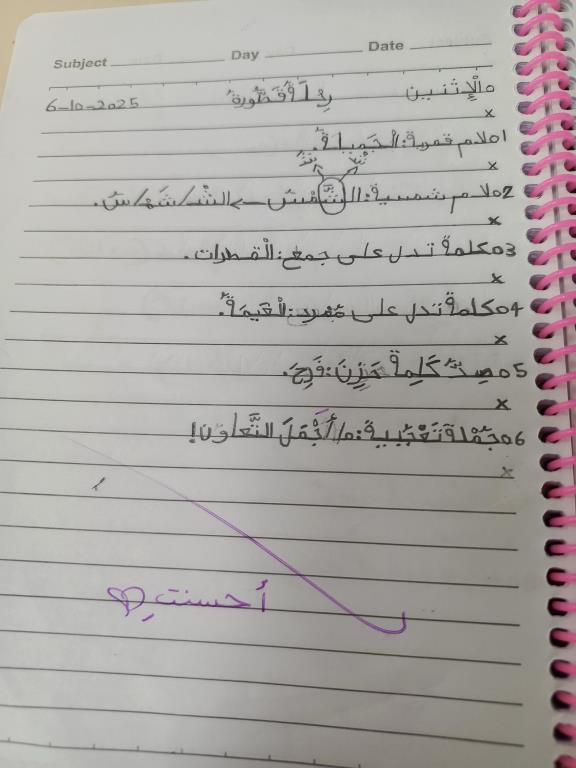 Subject Day Date
الْإثنين رحلة قطورة 6-10-2025
x
1 لام قمرية: الجميلة.
x
2 لام شمسية: الشَّمْس → الشْ/شَ/مْ/سُ.
x
3 كلمة تدل على جمع: الْقطرات.
x
4 كلمة تدل على مفرد: الْغيمة.
x
5 ضِدّ كَلِمة حَزِنَ: فَرِحَ.
x
6 جُملة تَعَجُّبية: ما أَجْمَلَ التَّعاوُن!
x
أحسنتِ